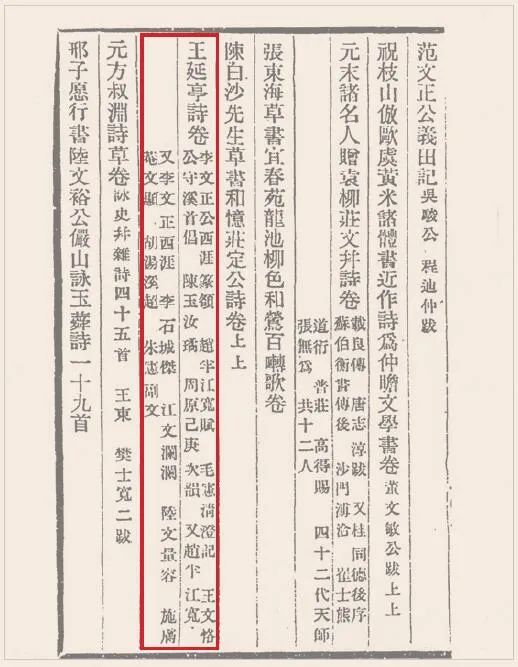 范文正公義田記 吳駿公 程迪仲跋
祝枝山倣歐虞黃米諸體書近作詩爲仲瞻文學書卷 董文敏公跋上上
元末諸名人贈袁柳莊文幷詩卷
戴良傳 唐志淳跋 又桂同德後序
蘇伯衡書傳後 沙門溥洽 崔士熊
道衍 普莊 高得暘 四十二代天師
張無爲 共十二人
張東海草書宜春苑龍池柳色和鶯百囀歌卷
陳白沙先生草書和憶莊定公詩卷上上
王延亭詩卷
李文正公西涯篆額 趙半江寬賦 毛憲清澄記 王文恪
公守溪首倡 陳玉汝璚 周原己庚 次韻 又趙半江寬
又李文正西涯 李石城傑 江文瀾瀾 陸文量容 施膚
菴文顯 胡湯溪超 朱憲副文
元方叔淵詩草卷 詠史幷雜詩四十五首 王東 樊士寬二跋
邢子愿行書陸文裕公儼山詠玉蕣詩一十九首